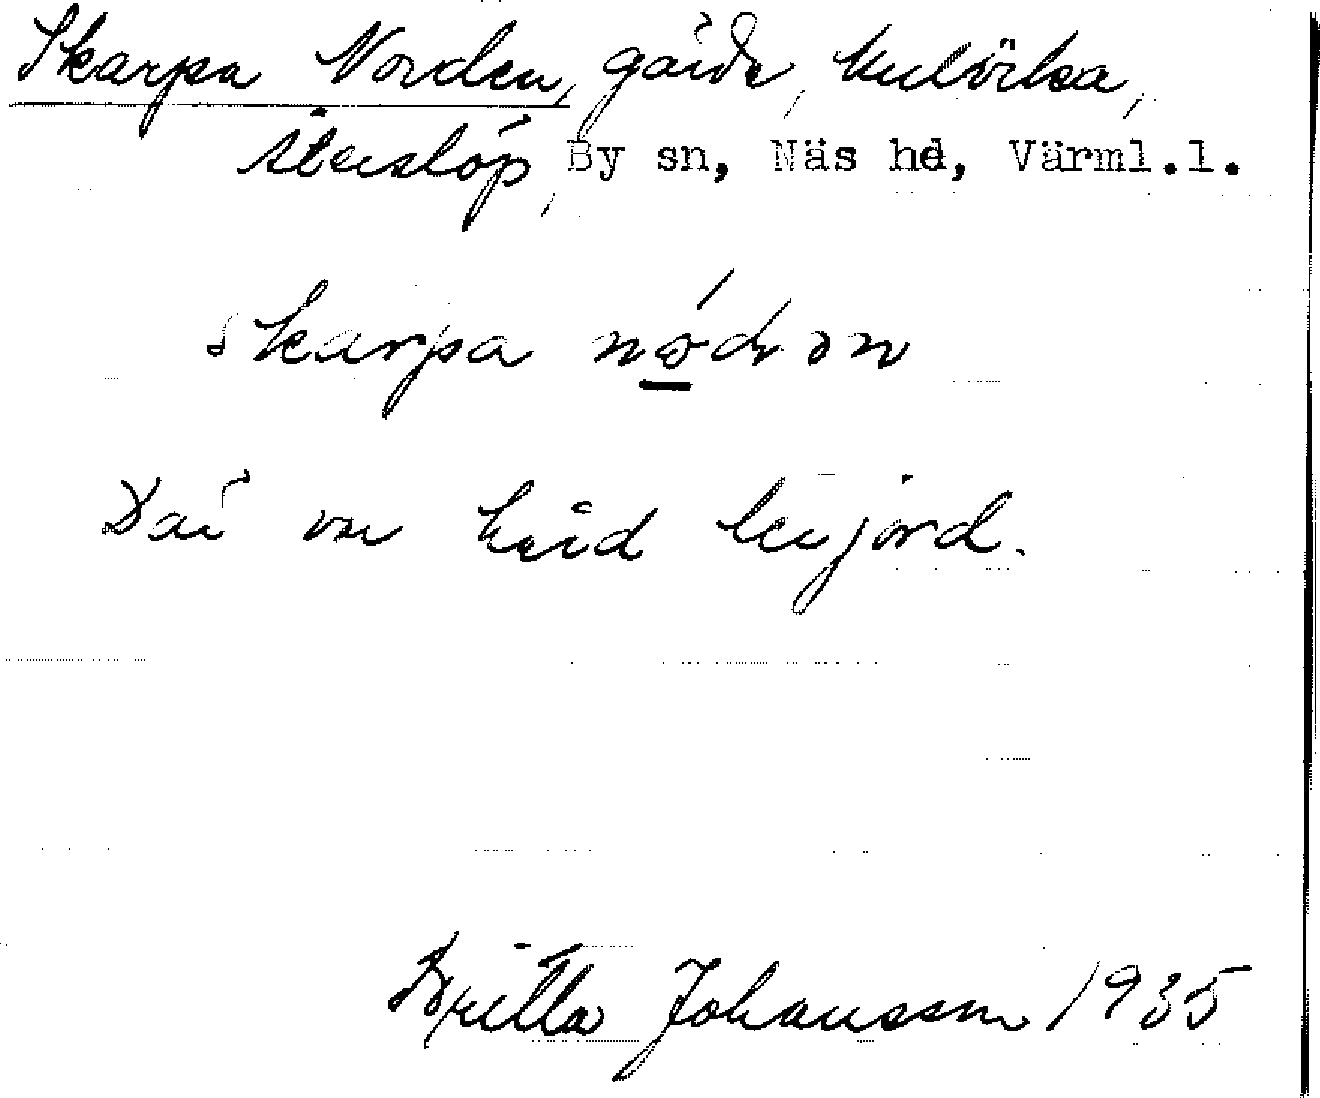 Skarpa Norden, gärde, kulörta,
Stenslöp, By sn, Näs hd, Värml.l.
skarpa nó̠dən
Där var hård lerjord.
Britta Johansson 1935